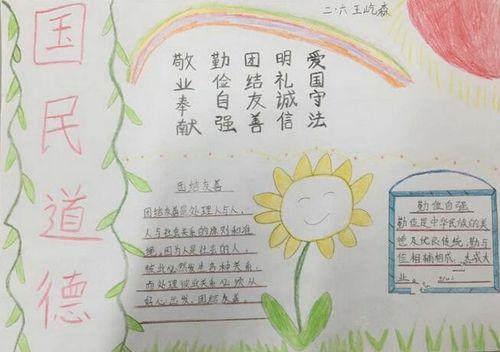 国民道德
二.六王屹森
爱国守法
明礼诚信
团结友善
勤俭自强
敬业奉献
团结友善
团结友善是处理人与人,
人与社会关系的原则和准
绳,因为人是社会的人,
彼此必然发生各种关系,
而处理彼此关系必须从
好心出发,团结友善。
勤俭自强
勤俭是中华民族的美
德及优良传统,勤与
俭相辅相成,
业